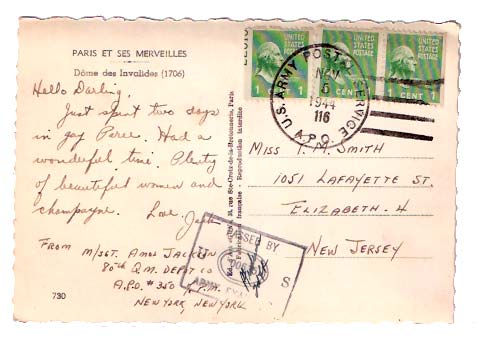 PARIS ET SES MERVEILLES
Dôme des Invalides (1706)
Hello Darling,
Just spent two days
in gay Paree. Had a
wonderful time. Plenty
of beautiful women and
champagne. Love Jack
FROM M/SGT. AMOS JACKSON
80th Q.M. DEPOT CO
A.P.O. #350 % P.M.
NEW YORK, NEW YORK
730
Paris
Fabrication Française - Reproduction interdite
UNITED STATES POSTAGE
1 CENT 1
UNITED STATES POSTAGE
1 CENT 1
UNITED STATES POSTAGE
1 CENT 1
U.S. ARMY POSTAL SERVICE
NOV
5
1944
116
A.P.O.
PASSED BY
U S
ARMY EXAMINER
MISS T. M. SMITH
1051 LAFAYETTE ST.
ELIZABETH-4
NEW JERSEY